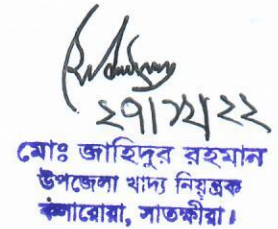 ২৭/১২/২২
মোঃ জাহিদুর রহমান
উপজেলা খাদ্য নিয়ন্ত্রক
কলারোয়া, সাতক্ষীরা।